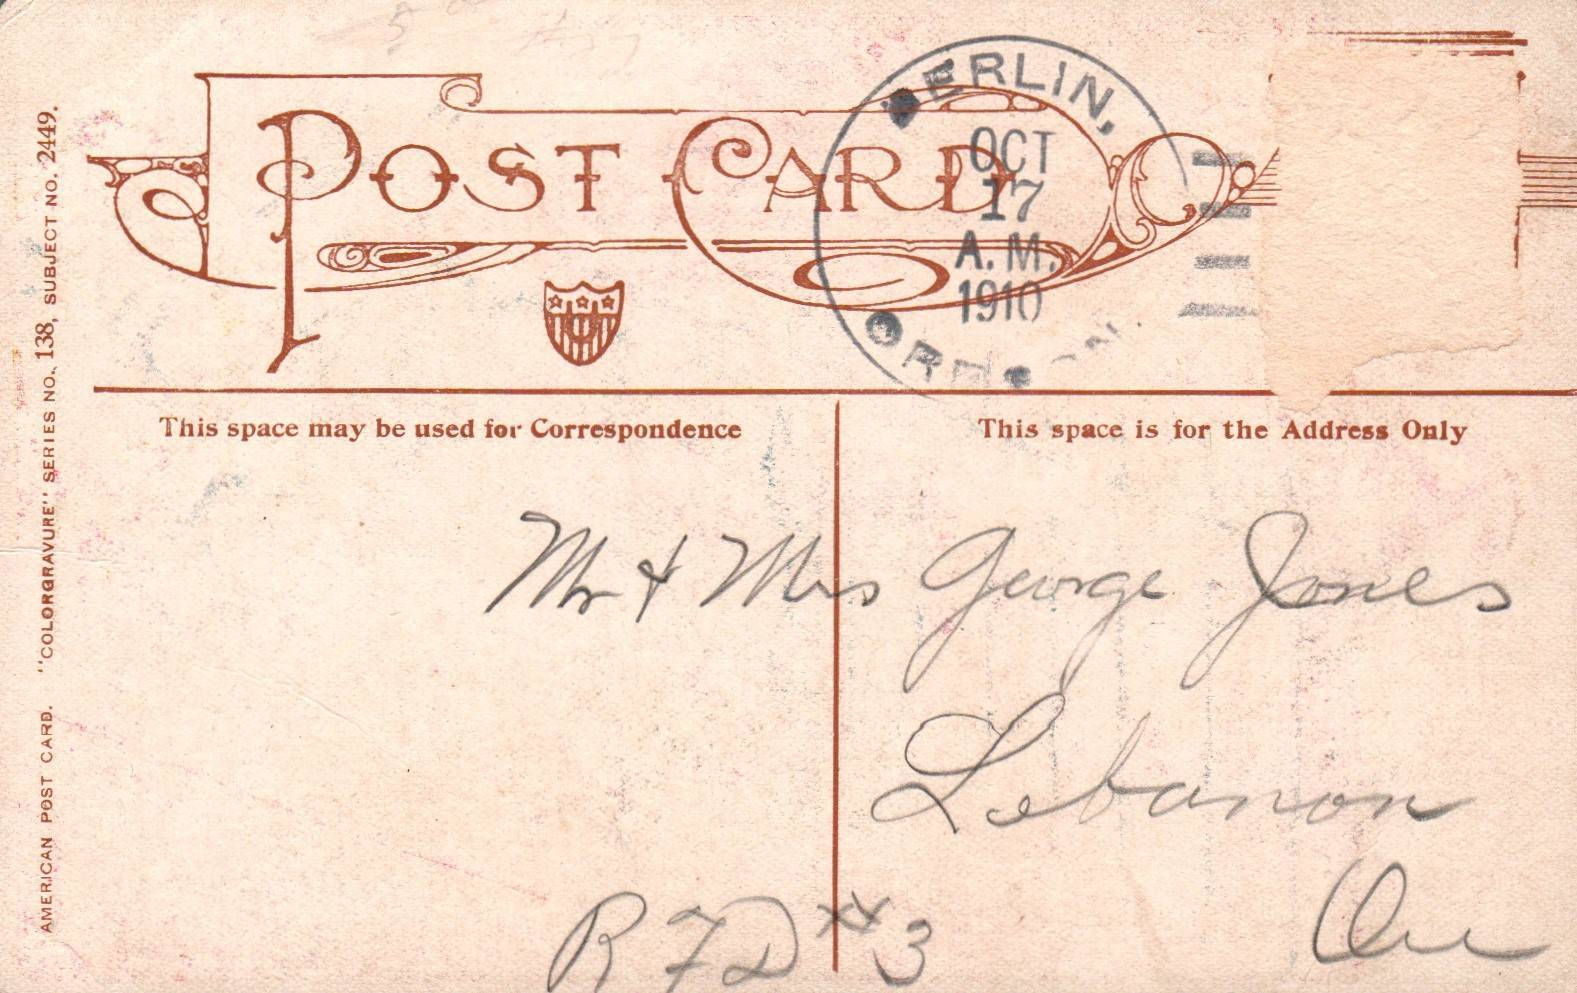 POST CARD
BERLIN,
OCT
17
A.M.
1910
This space may be used for Correspondence
This space is for the Address Only
Mr & Mrs George Jones
Lebanon
Ore
R F D # 3
AMERICAN POST CARD. "COLORGRAVURE" SERIES NO. 138, SUBJECT NO. 2449.